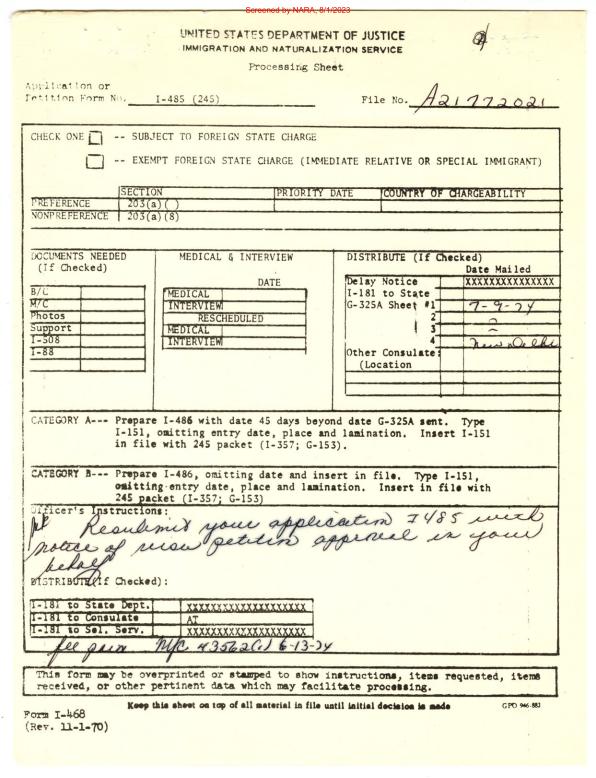 Screened by NARA, 8/1/2023
UNITED STATES DEPARTMENT OF JUSTICE
IMMIGRATION AND NATURALIZATION SERVICE
Processing Sheet
Application or
Petition Form No. I-485 (245) File No. A21772021
CHECK ONE -- SUBJECT TO FOREIGN STATE CHARGE
-- EXEMPT FOREIGN STATE CHARGE (IMMEDIATE RELATIVE OR SPECIAL IMMIGRANT)
SECTION PRIORITY DATE COUNTRY OF CHARGEABILITY
PREFERENCE 203(a)( )
NONPREFERENCE 203(a)(8)
DOCUMENTS NEEDED
(If Checked)
B/C
M/C
Photos
Support
I-508
I-88
MEDICAL & INTERVIEW
DATE
MEDICAL
INTERVIEW
RESCHEDULED
MEDICAL
INTERVIEW
DISTRIBUTE (If Checked)
Date Mailed
Delay Notice XXXXXXXXXXXXXXX
I-181 to State
G-325A Sheet #1 7-9-74
2
3
4 New Delhi
Other Consulate:
(Location
CATEGORY A--- Prepare I-486 with date 45 days beyond date G-325A sent. Type
I-151, omitting entry date, place and lamination. Insert I-151
in file with 245 packet (I-357; G-153).
CATEGORY B--- Prepare I-486, omitting date and insert in file. Type I-151,
omitting entry date, place and lamination. Insert in file with
245 packet (I-357; G-153)
Officer's Instructions:
Resubmit your application I485 with
notice of visa petition approval in your
behalf
DISTRIBUTE (If Checked):
I-181 to State Dept. XXXXXXXXXXXXXXXXXXXX
I-181 to Consulate AT
I-181 to Sel. Serv. XXXXXXXXXXXXXXXXXXXX
fee M/C #3562(c) 6-13-74
This form may be overprinted or stamped to show instructions, items requested, items
received, or other pertinent data which may facilitate processing.
Keep this sheet on top of all material in file until initial decision is made
GPO 946-883
Form I-468
(Rev. 11-1-70)